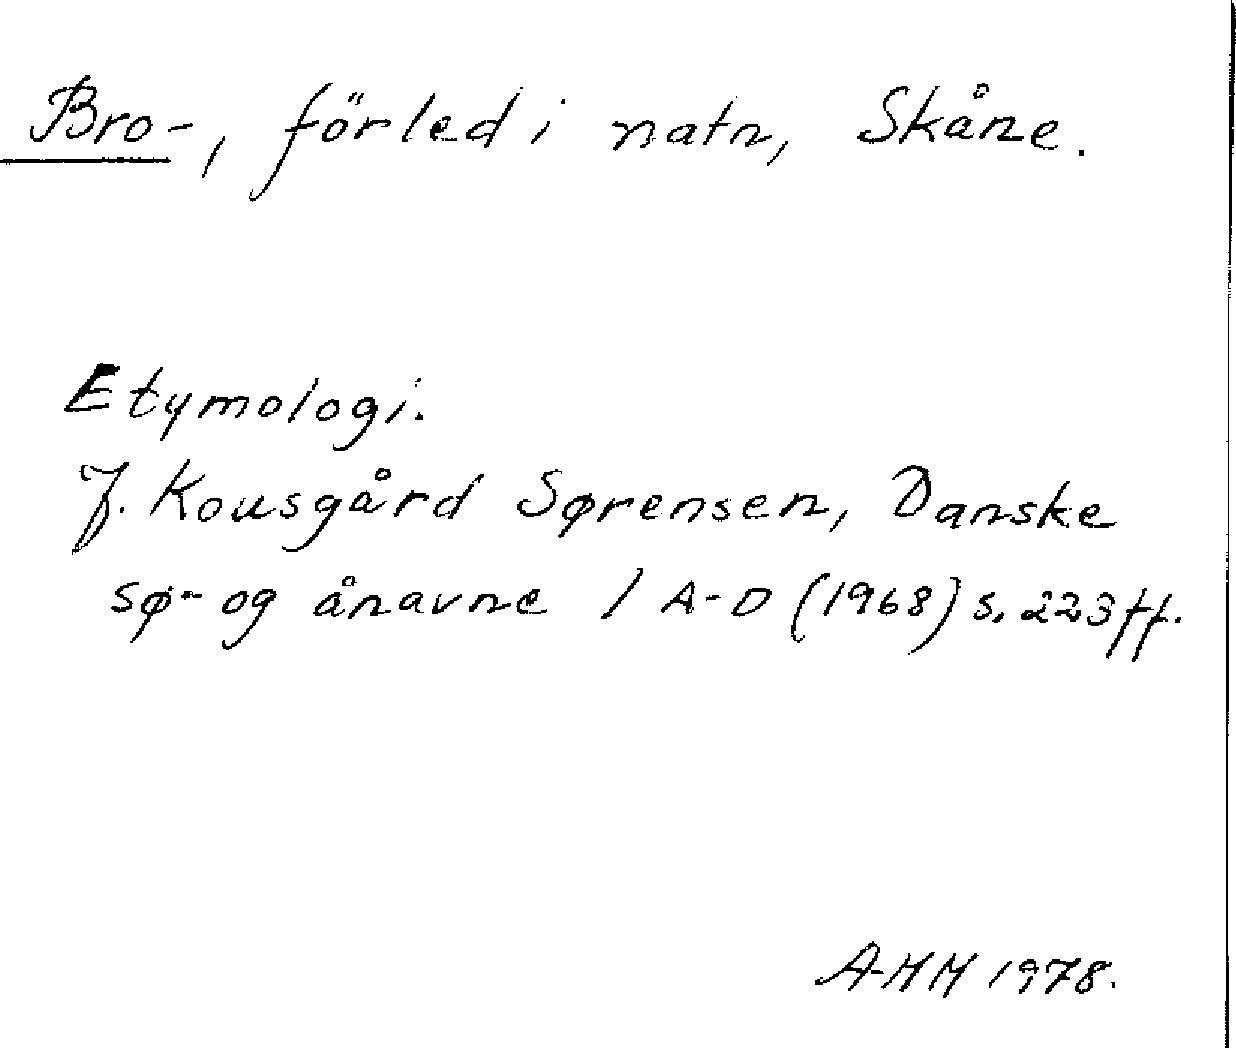 Bro-, förled i natn, Skåne.
Etymologi.
J. Kousgård Sørensen, Danske
sø- og ånavne 1 A-D (1968) s. 223 ff.
A-HM 1978.